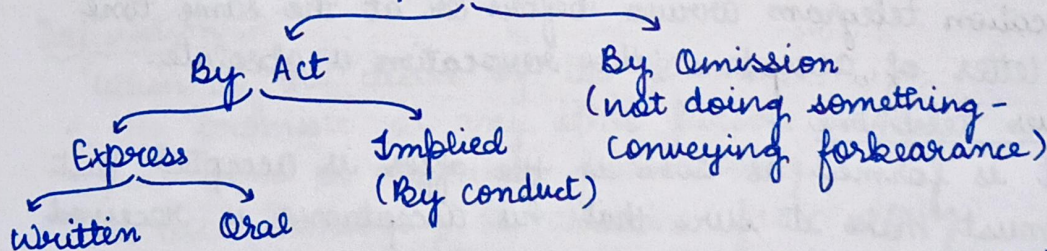 By Act
By Omission
(not doing something -
conveying forbearance)
Express
Implied
(By conduct)
Written
Oral